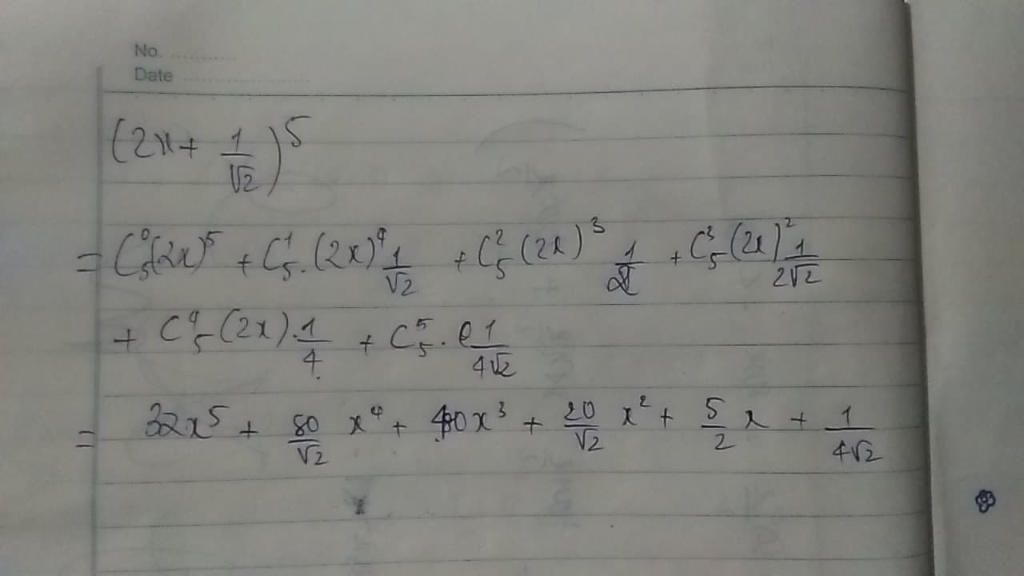 No. ..........
Date ....................
(2x + 1/√2)^5
= C_5^0 (2x)^5 + C_5^1 . (2x)^4 1/√2 + C_5^2 (2x)^3 1/2 + C_5^3 (2x)^2 1/2√2
+ C_5^4 (2x) . 1/4 + C_5^5 . 1/4√2
= 32x^5 + 80/√2 x^4 + 40x^3 + 20/√2 x^2 + 5/2 x + 1/4√2